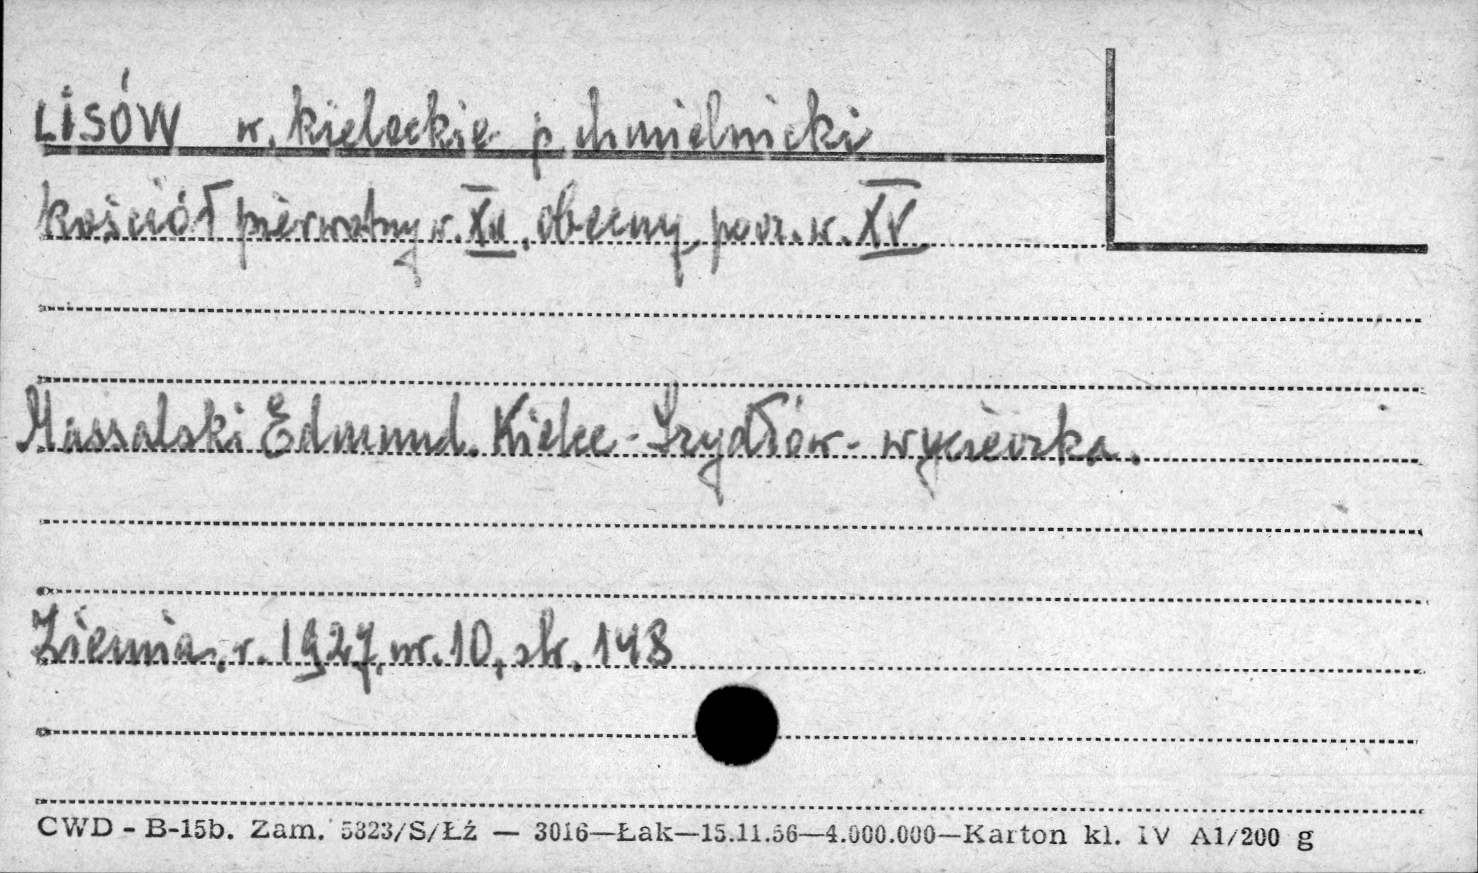 LISÓW w. kieleckie p. chmielnicki
kościół pierwotny w. XII, obecny pocz. w. XV
Massalski Edmund. Kielce - Szydłów - wycieczka.
Ziemia, r. 1927, nr. 10, str. 148
CWD - B-15b. Zam. 5323/S/Łż — 3016—Łak—15.11.56—4.000.000—Karton kl. IV A1/200 g